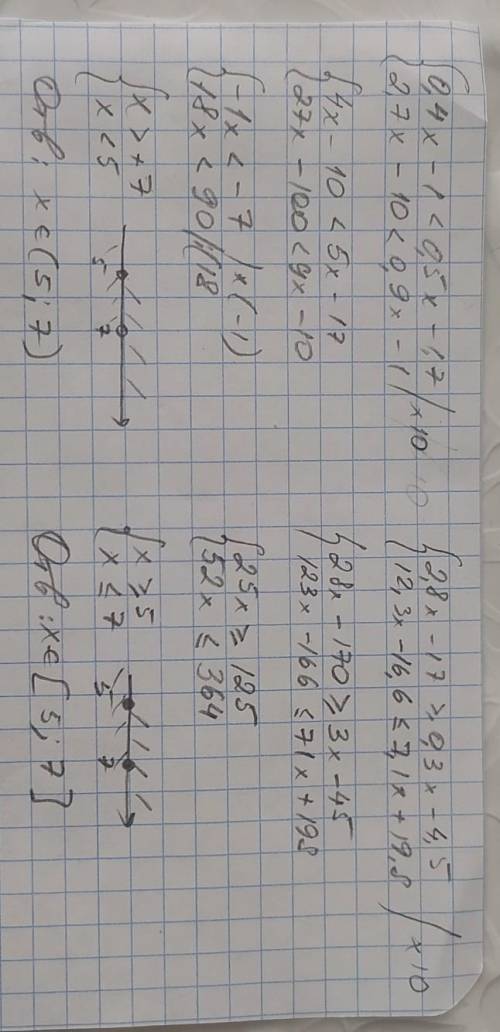 {0,4x - 1 < 0,5x - 1,7
{2,7x - 10 < 0,9x - 1 | x 10
{4x - 10 < 5x - 17
{27x - 100 < 9x - 10
{-1x < -7 | x(-1)
{18x < 90 | (18
{x > +7
{x < 5
5 7
Отв: x ∈ (5; 7)
{2,8x - 17 ≥ 0,3x - 4,5
{12,3x - 16,6 ≤ 7,1x + 19,8 | x 10
{28x - 170 ≥ 3x - 45
{123x - 166 ≤ 71x + 198
{25x ≥ 125
{52x ≤ 364
{x ≥ 5
{x ≤ 7
5 7
Отв: x ∈ [5; 7]